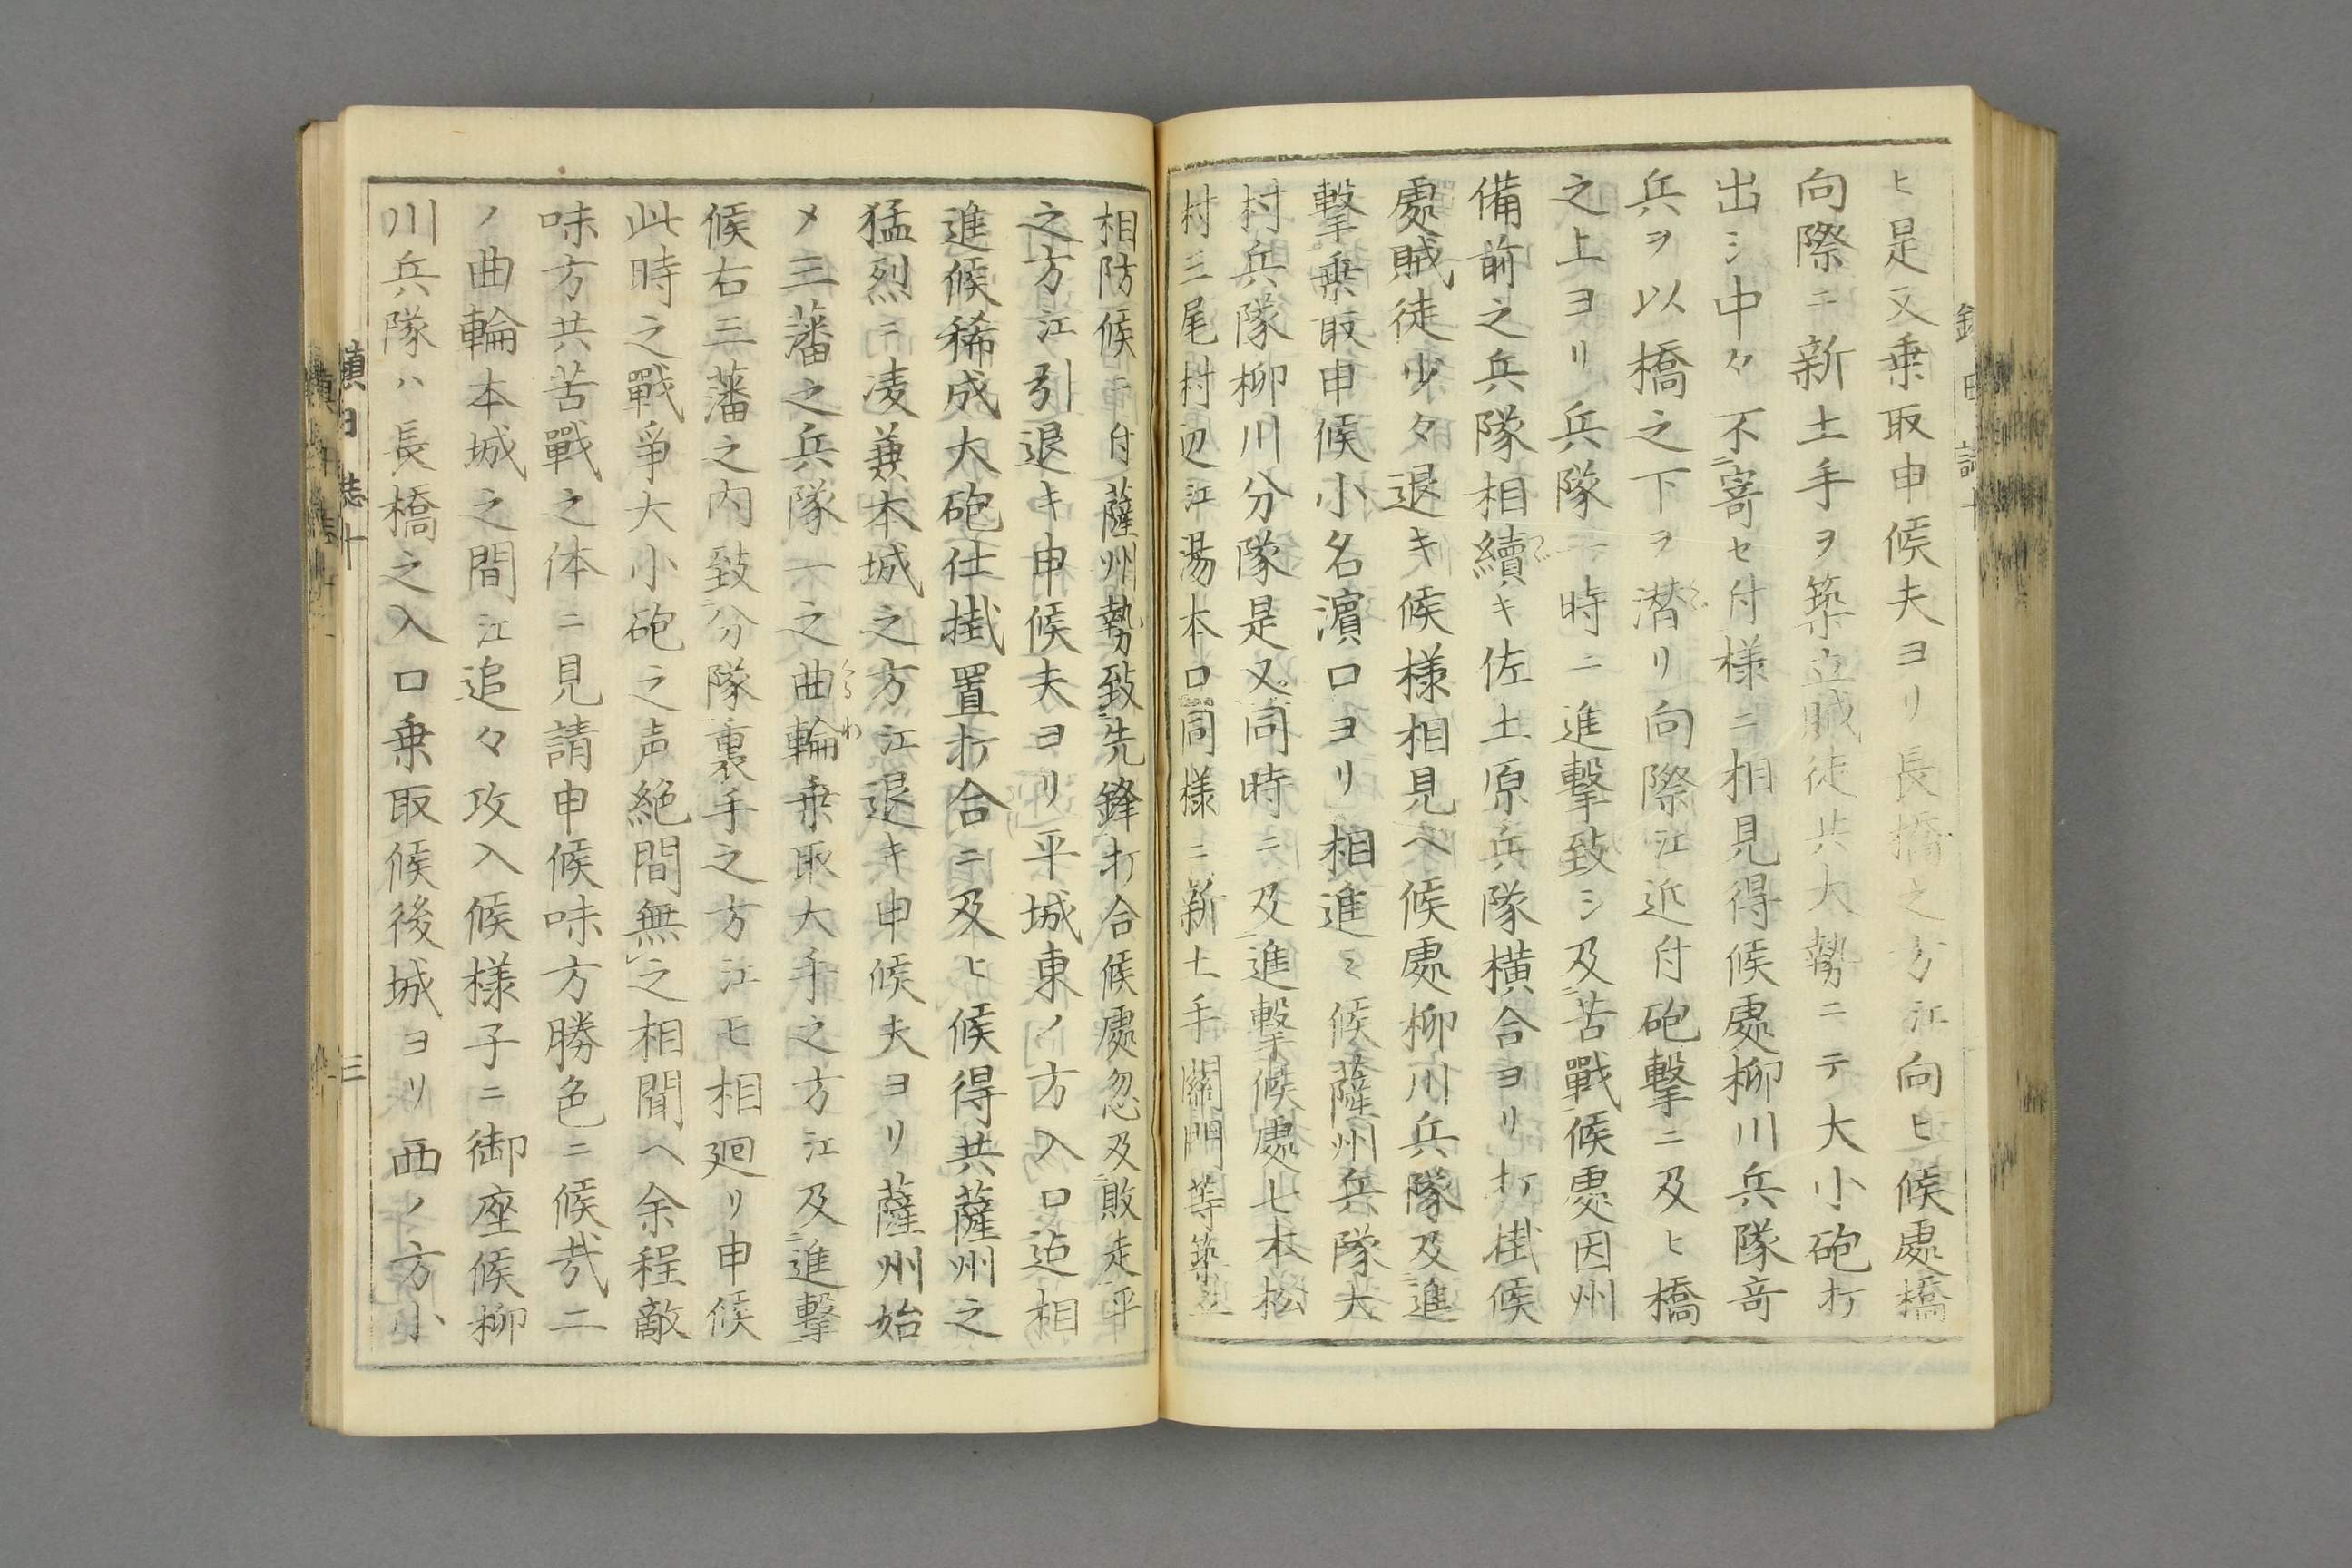 ヒ是又乗取申候夫ヨリ長橋之方江向ヒ候處橋
向際ニ新土手ヲ築立賊徒共大勢ニテ大小砲打
出シ中々不寄セ付様ニ相見得候處柳川兵隊竒
兵ヲ以橋之下ヲ潜リ向際江近付砲撃ニ及ヒ橋
之上ヨリ兵隊一時ニ進撃致シ及苦戰候處因州
備前之兵隊相續キ佐土原兵隊横合ヨリ打掛候
處賊徒少々退キ候様相見ヘ候處柳川兵隊及進
撃乗取申候小名濱口ヨリ相進ミ候薩州兵隊大
村兵隊柳川分隊是又同時ニ及進撃候處七本松
村三尾村辺江湯本口同様ニ新土手關門等築立
相防候ニ付薩州勢致先鋒打合候處忽及敗走平
之方江引退キ申候夫ヨリ平城東ノ方入口迠相
進候稀成大砲仕掛置打合ニ及ヒ候得共薩州之
猛烈ニ凌兼本城之方江退キ申候夫ヨリ薩州始
メ三藩之兵隊一之曲輪乗取大手之方江及進撃
候右三藩之内致分隊裏手之方江モ相廻リ申候
此時之戰爭大小砲之声絶間無之相聞ヘ余程敵
味方共苦戰之体ニ見請申候味方勝色ニ候哉二
ノ曲輪本城之間江追々攻入候様子ニ御座候柳
川兵隊ハ長橋之入口乗取候後城ヨリ西ノ方小
日誌十
三